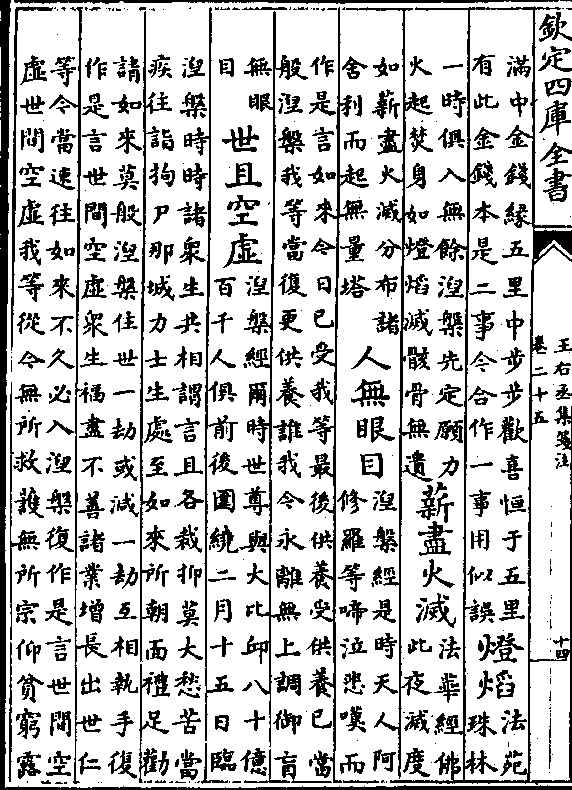 欽定四庫全書
王右丞集箋注
卷二十五
十四
滿中金錢緣五里中步步歡喜恒于五里
有此金錢本是二事今合作一事用似誤
燈熖
法苑
珠林
一時俱入無餘湼槃先定願力
火起焚身如燈熖滅骸骨無遺
薪盡火滅
法華經佛
此夜滅度
如薪盡火滅分布諸
舍利而起無量塔
人無眼目
湼槃經是時天人阿
修羅等啼泣悲嘆而
作是言如來今日已受我等最後供養受供養已當
般湼槃我等當復更供養誰我今永離無上調御盲
無眼
目
世且空虛
湼槃經爾時世尊與大比邱八十億
百千人俱前後圍繞二月十五日臨
湼槃時時諸衆生共相謂言且各裁抑莫大愁苦當
疾往詣拘尸那城力士生處至如來所朝面禮足勸
請如來莫般湼槃住世一劫或減一劫互相執手復
作是言世間空虛衆生福盡不善諸業增長出世仁
等今當速往如來不久必入湼槃復作是言世間空
虛世間空虛我等從今無所救護無所宗仰貧窮露